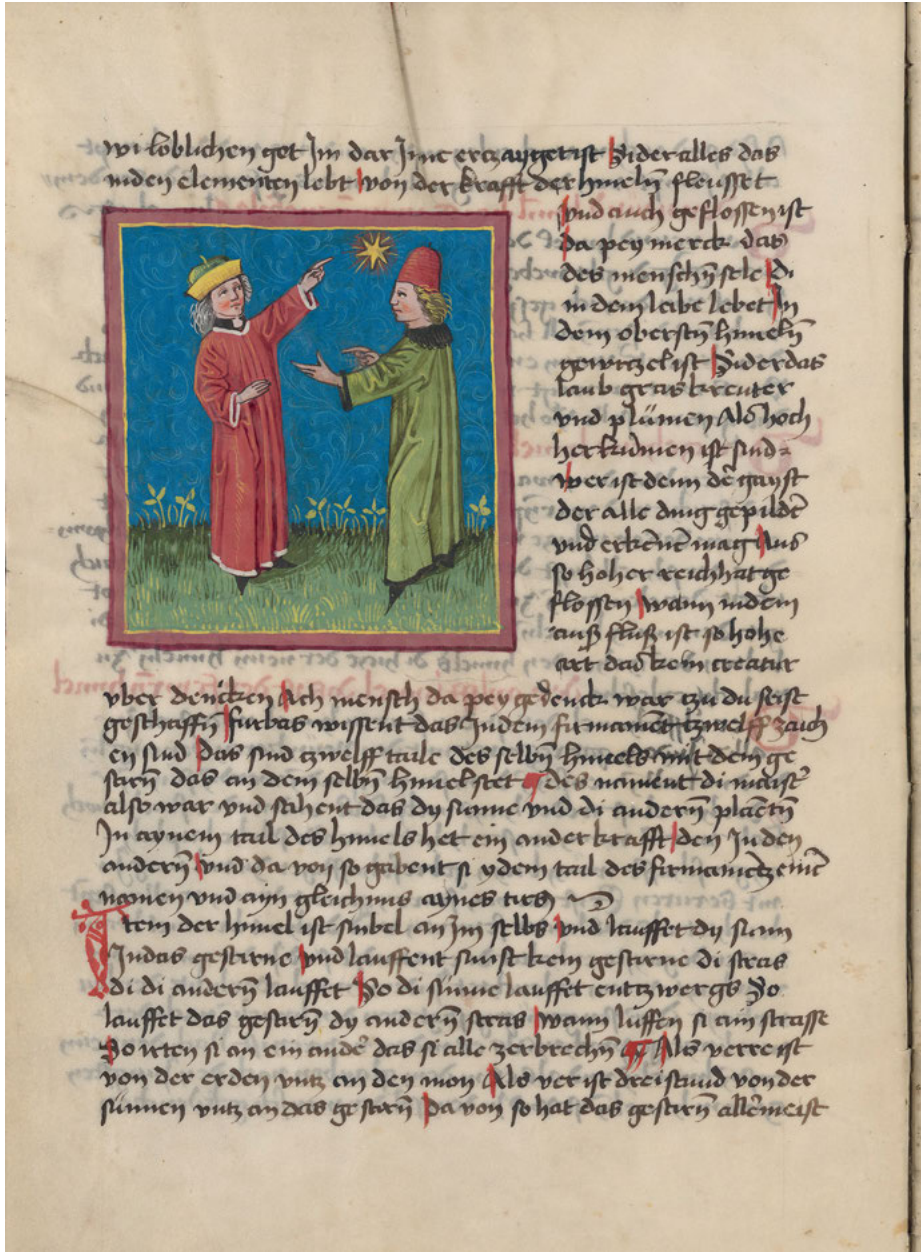 wi loblichen got Im dar Inne erczayget ist Sider alles das
in den elementen lebt von der krafft der himeln̄ fleusset
vnd auch geflossen ist
da pey merck das
des menschn̄ sele di
in dem leibe lebet In
dem oberstn̄ himeln̄
gewrczel ist Sider das
laub gras kreuter
vnd plůmen Als hoch
her kůmen ist sind
wer ist denn der̄ gayst
der alle ding gepildet
vnd erken̄en̄ mag Aus
so hoher reich hat ge
flossen wann in dem
auß fluß ist so hohe
art das kein creatur
vber dencken Ach mensch da pey gedenck war czu du seist
geschaffn̄ furbas wissent das In dem firmament czwelff zaich
en sind Das sind czwelff taile des selbn̄ himels mit dem ge
starn̄ das an dem selbn̄ himel stet des nament di maister̄
also war vnd sahent das dy sunne vnd di andern̄ planetn̄
In aynem tail des himels het ein ander krafft den In den
andern̄ vnd da von so gabent si ydem tail des firmamencz einen̄
namen vnd ayn gleichnus aynes tirs
Item der himel ist sinbel an Im selbs vnd lauffet dy sunn
In das gestirne vnd lauffent sunst kein gestirne di stras
di di andern̄ lauffet So di sunne lauffet entzwergs So
lauffet das gestirn̄ dy andern̄ stras wann luffen si ain strasse
So irten si an ein ander̄ das si alle zerbrechn̄ Als verre ist
von der erden vntz an den mon Als ver ist drei stund von der
sůnnen vntz an das gestirn̄ Da von so hat das gestirn̄ aller̄meist